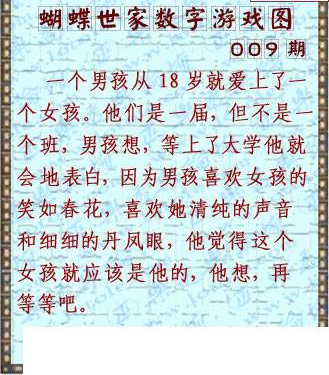 蝴蝶世家数字游戏图
009期
一个男孩从18岁就爱上了一
个女孩。他们是一届，但不是一
个班，男孩想，等上了大学他就
会地表白，因为男孩喜欢女孩的
笑如春花，喜欢她清纯的声音
和细细的丹凤眼，他觉得这个
女孩就应该是他的，他想，再
等等吧。